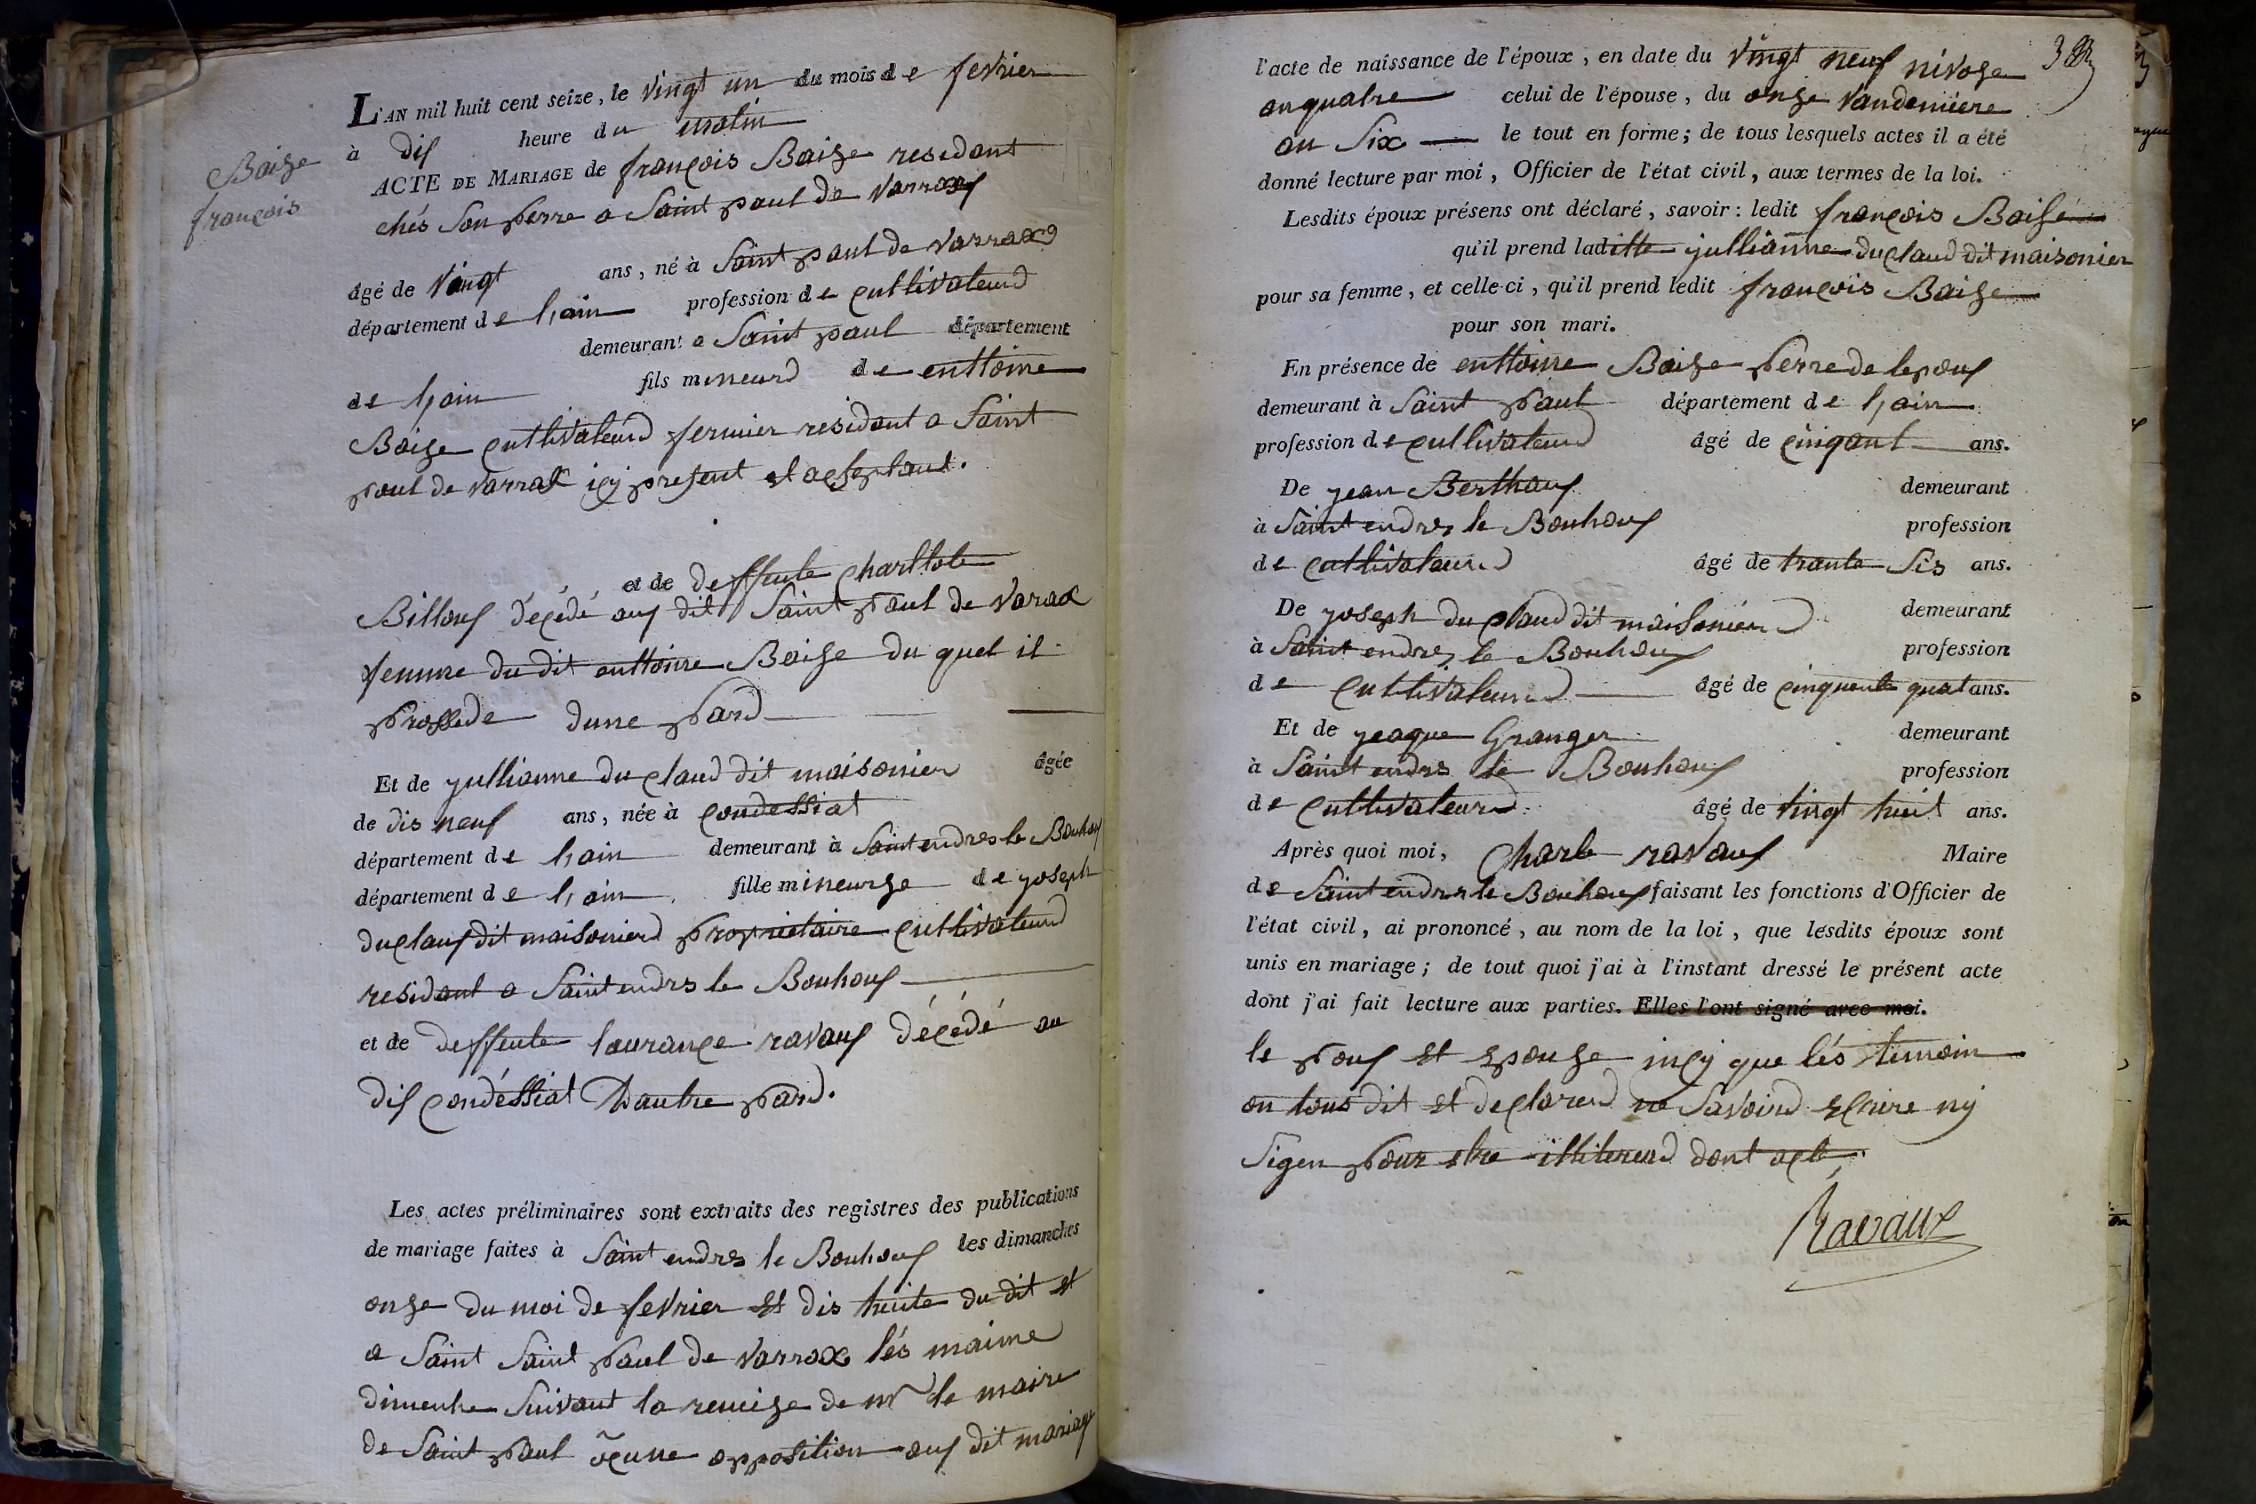 L'AN mil huit cent seize, le vingt un du mois de fevrier
à dix heure du matin
Baise
françois
ACTE DE MARIAGE de françois Baise residant
chés son perre a Saint paul de varrax
âgé de vingt ans, né à Saint paul de varrax
département de lain profession de cultivateur
demeurant a Saint paul département
de lain fils mineurd de enttoine
Baise cultivateurd fermier residant a Saint
paul de varrax icy present et acseptant.
et de deffunte charllote
Billoux décédé aux dit Saint paul de varax
femme du dit anttoine Baise du quel il
prossede dune pard
Et de jullianne duclaud dit maisonier âgée
de dis neuf ans, née à condessiat
département de lain demeurant à Saint endres le Bouhoux
département de lain fille mineurse de joseph
duclaux dit maisonierd propriétaire cultivateurd
residant a Saint endres le Bouhoux
et de deffunte laurance ravaux décédé au
dis condéssiat Dautre pard.
Les actes préliminaires sont extraits des registres des publications
de mariage faites à Saint endres le Bouhoux les dimanches
onze du moi de fevrier et dis huite du dit et
a Saint Saint paul de varrax lés maime
dimenche suivant la remise de mr le maire
de Saint paul opposition aux dit mariage
l'acte de naissance de l'époux, en date du vingt neuf nivose
an quatre celui de l'épouse, du onze vandemiere
an Six le tout en forme; de tous lesquels actes il a été
donné lecture par moi, Officier de l'état civil, aux termes de la loi.
Lesdits époux présens ont déclaré, savoir: ledit françois Baise
qu'il prend laditte jullianne duclaud dit maisonier
pour sa femme, et celle-ci, qu'il prend ledit françois Baise
pour son mari.
En présence de enttoine Baise perre de lepoux
demeurant à Saint paul département de lain
profession de cultivateurd âgé de cinqant ans.
De jean Berthoux demeurant
à Saint endres le Bouhoux profession
de cultivateurd âgé de trante sis ans.
De joseph duclaud dit maisonierd demeurant
à Saint endres le Bouhoux profession
de cultivateurd âgé de cinquente quat ans.
Et de jeaque Granger demeurant
à Saint endres le Bouhoux profession
de cultivateurd âgé de vingt huit ans.
Après quoi moi, Charle ravaux Maire
de Saint endres le Bouhoux faisant les fonctions d'Officier de
l'état civil, ai prononcé, au nom de la loi, que lesdits époux sont
unis en mariage; de tout quoi j'ai à l'instant dressé le présent acte
dont j'ai fait lecture aux parties. Elles l'ont signé avec moi.
le poux et epouse incy que lés temoin
on tous dit et declarend ne savoird ecrire ny
sigen pour etre illiterend dont acte,
Ravaux